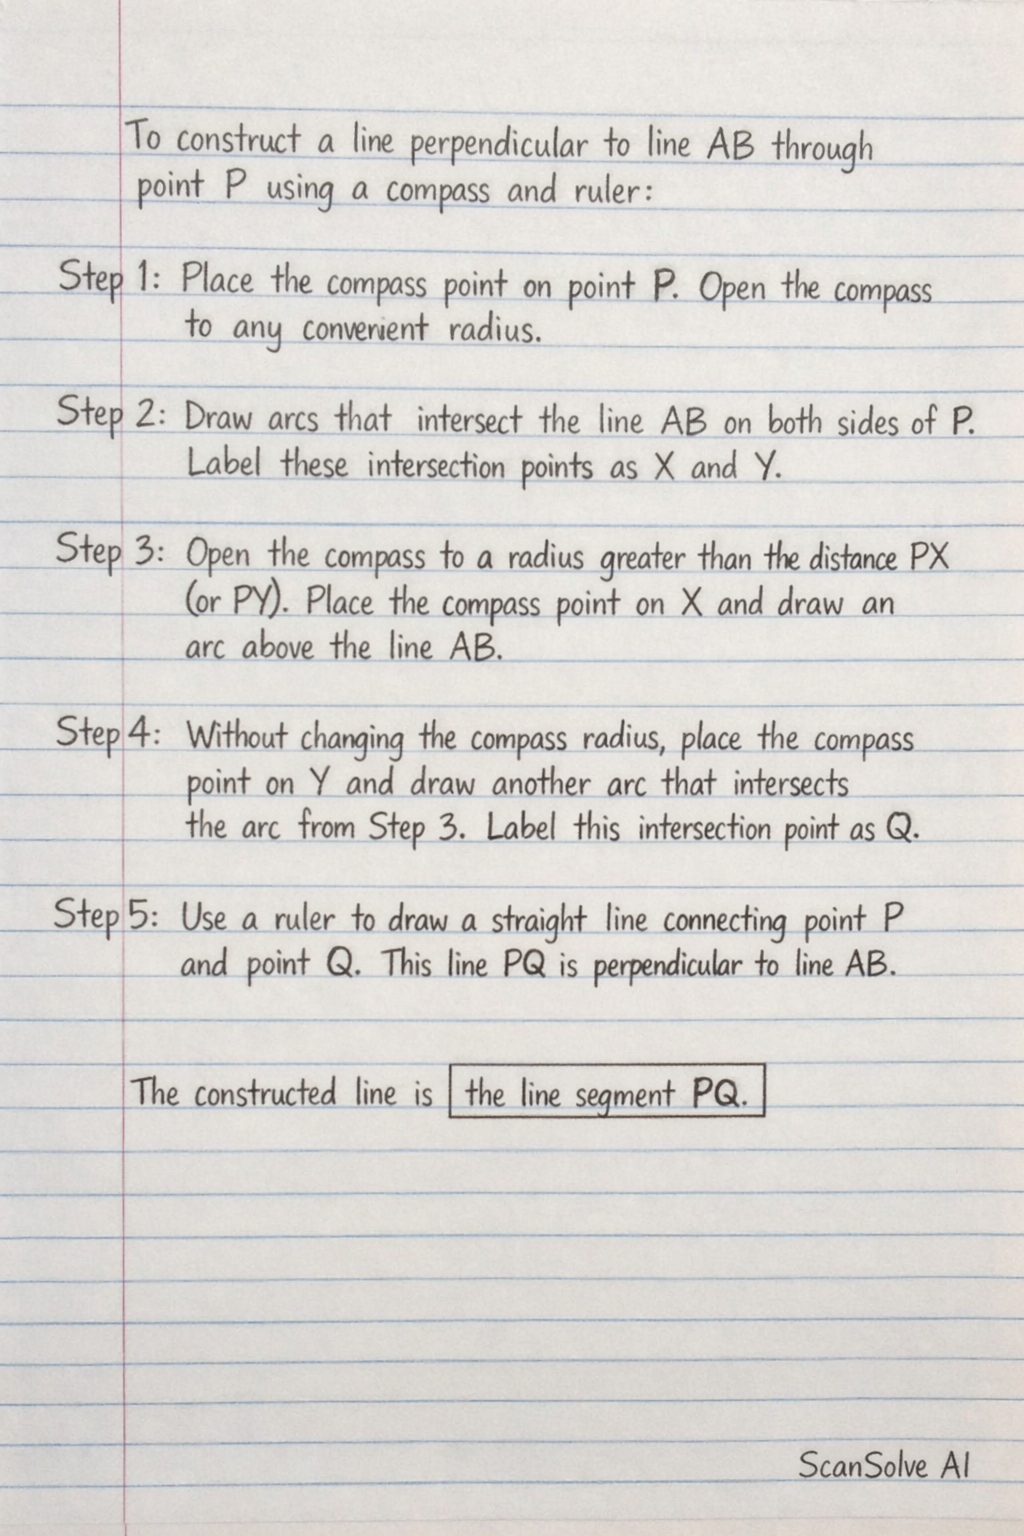 To construct a line perpendicular to line AB through
point P using a compass and ruler:
Step 1: Place the compass point on point P. Open the compass
to any convenient radius.
Step 2: Draw arcs that intersect the line AB on both sides of P.
Label these intersection points as X and Y.
Step 3: Open the compass to a radius greater than the distance PX
(or PY). Place the compass point on X and draw an
arc above the line AB.
Step 4: Without changing the compass radius, place the compass
point on Y and draw another arc that intersects
the arc from Step 3. Label this intersection point as Q.
Step 5: Use a ruler to draw a straight line connecting point P
and point Q. This line PQ is perpendicular to line AB.
The constructed line is the line segment PQ.
ScanSolve AI